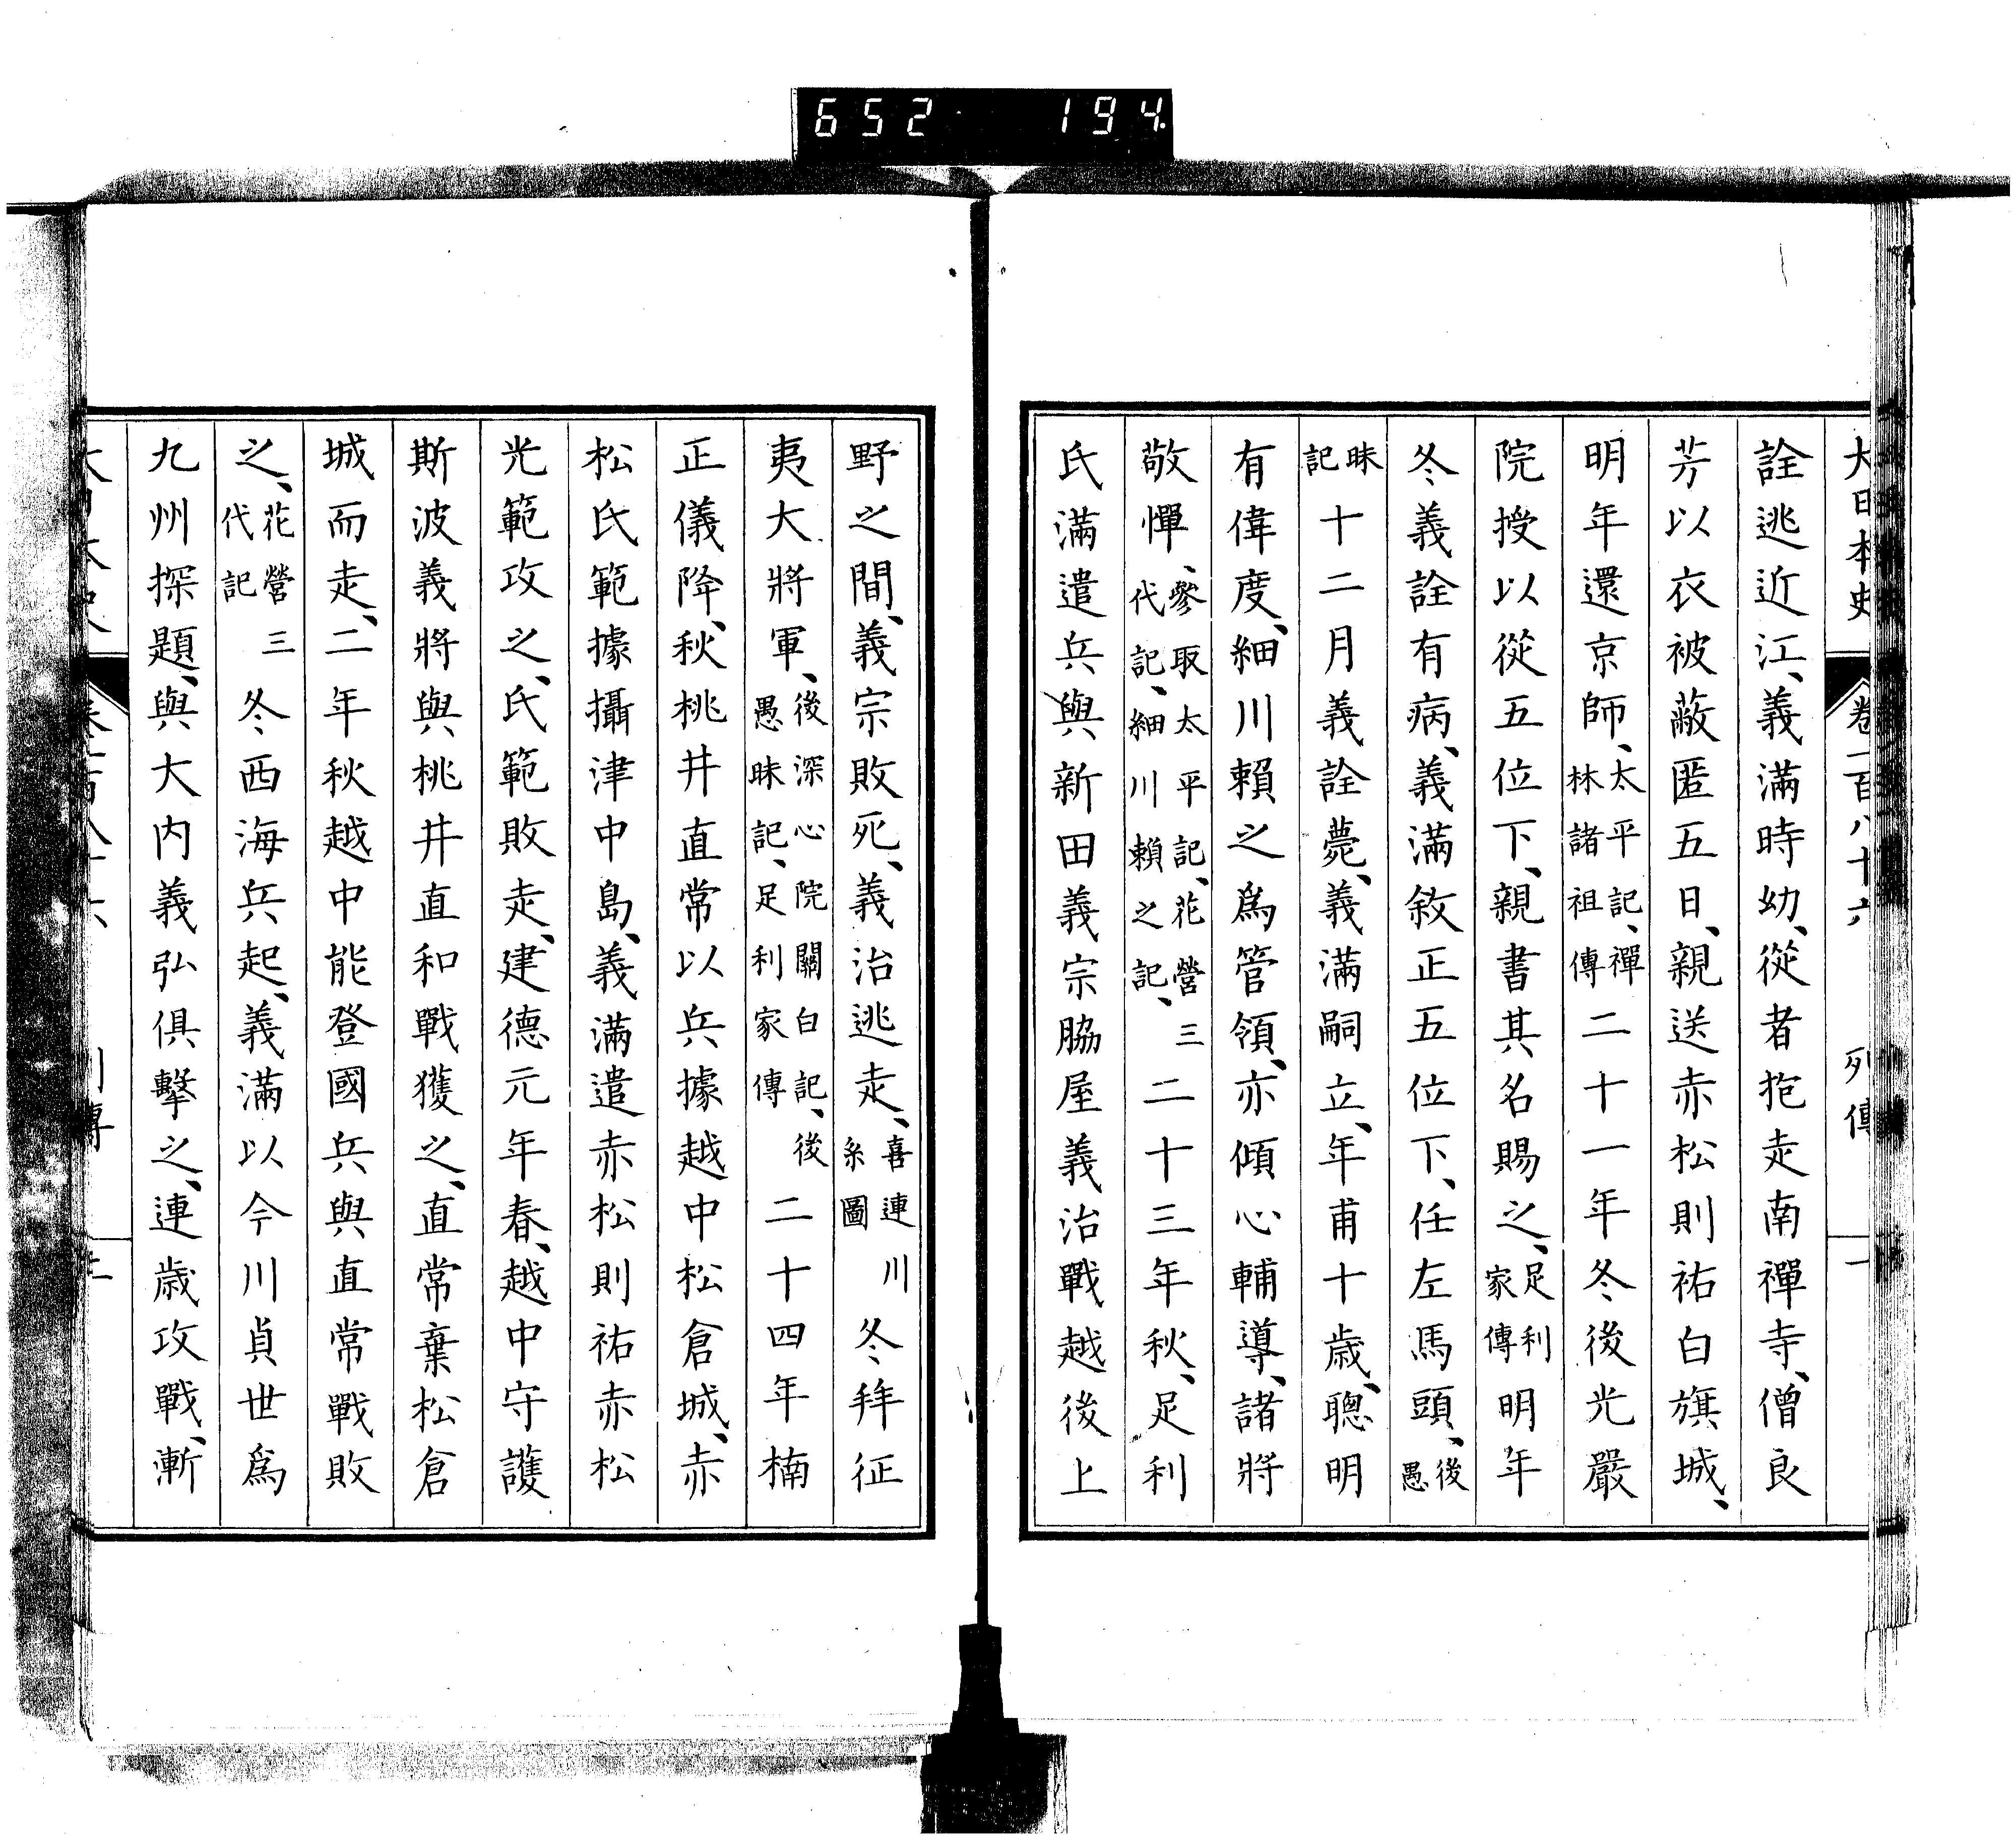 652 194.
大日本史 卷一百八十六 列傳 一
詮逃近江、義滿時幼、從者抱走南禪寺、僧良
芳以衣被蔽匿五日、親送赤松則祐白旗城、
明年還京師、太平記、禪林諸祖傳二十一年冬後光嚴
院授以從五位下、親書其名賜之、足利家傳明年
冬義詮有病、義滿敘正五位下、任左馬頭、後愚
昧記十二月義詮薨、義滿嗣立、年甫十歲、聰明
有偉度、細川賴之爲管領、亦傾心輔導、諸將
敬憚、參取太平記、花營三代記、細川賴之記、二十三年秋、足利
氏滿遣兵與新田義宗脇屋義治戰越後上
野之間、義宗敗死、義治逃走、喜連川系圖冬拜征
夷大將軍、後深心院關白記、後愚昧記、足利家傳二十四年楠
正儀降、秋桃井直常以兵據越中松倉城、赤
松氏範據攝津中島、義滿遣赤松則祐赤松
光範攻之、氏範敗走、建德元年春、越中守護
斯波義將與桃井直和戰獲之、直常棄松倉
城而走、二年秋越中能登國兵與直常戰敗
之、花營三代記冬西海兵起、義滿以今川貞世爲
九州探題、與大內義弘俱擊之、連歲攻戰、漸